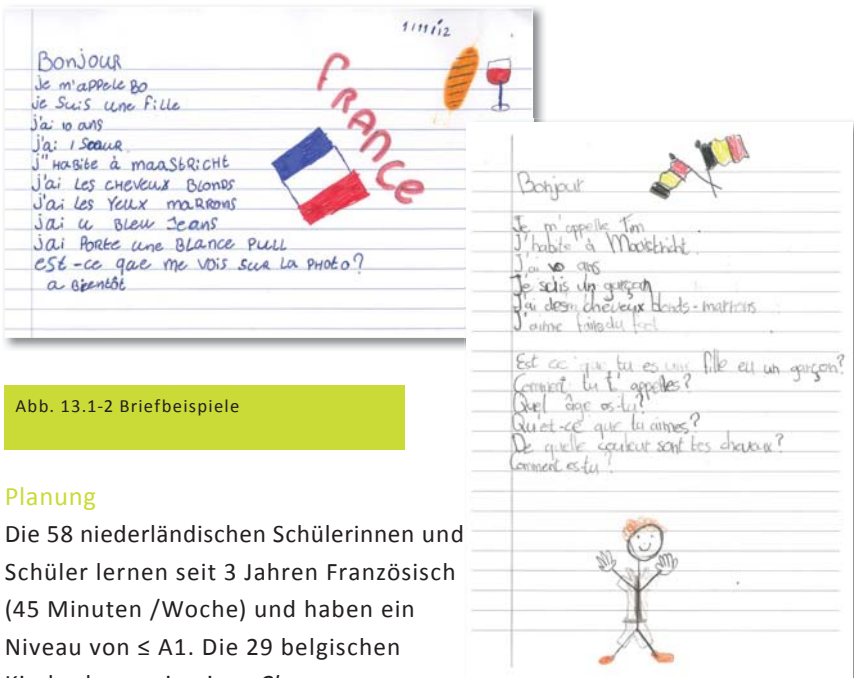 1/11/12
Bonjour
je m'appele Bo
je suis une fille
j'ai 10 ans
j'ai 1 soeur
j'habite à maastricht
j'ai les cheveux Blonds
j'ai les yeux marrons
jai u Bleu Jeans
jai Porte une Blance Pull
est-ce que me vois sur la Photo?
a Bientôt
FRANCE
Bonjour
Je m'appelle Tim
J'habite à Maastricht
J'ai 10 ans
Je suis un garçon
J'ai des cheveux -marrons
J'aime faire du
Est ce que tu es une fille ou un garçon?
Comment tu t'appelles?
Quel âge as-tu?
Qu'et-ce que tu aimes?
De quelle couleur sont tes chevaux?
Comment es-tu?
Abb. 13.1-2 Briefbeispiele
Planung
Die 58 niederländischen Schülerinnen und
Schüler lernen seit 3 Jahren Französisch
(45 Minuten /Woche) und haben ein
Niveau von ≤ A1. Die 29 belgischen